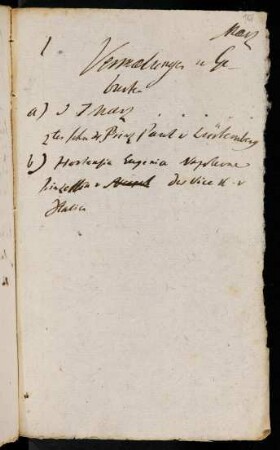 März
1
Vermälungen u Ge-
burten
a) d 7 März . . . .
2ter Sohn des Prinz Paul v Würtemberg
b) Hortensia Eugenia Napoleone
Prinzessin v des Vice K. v
Italien